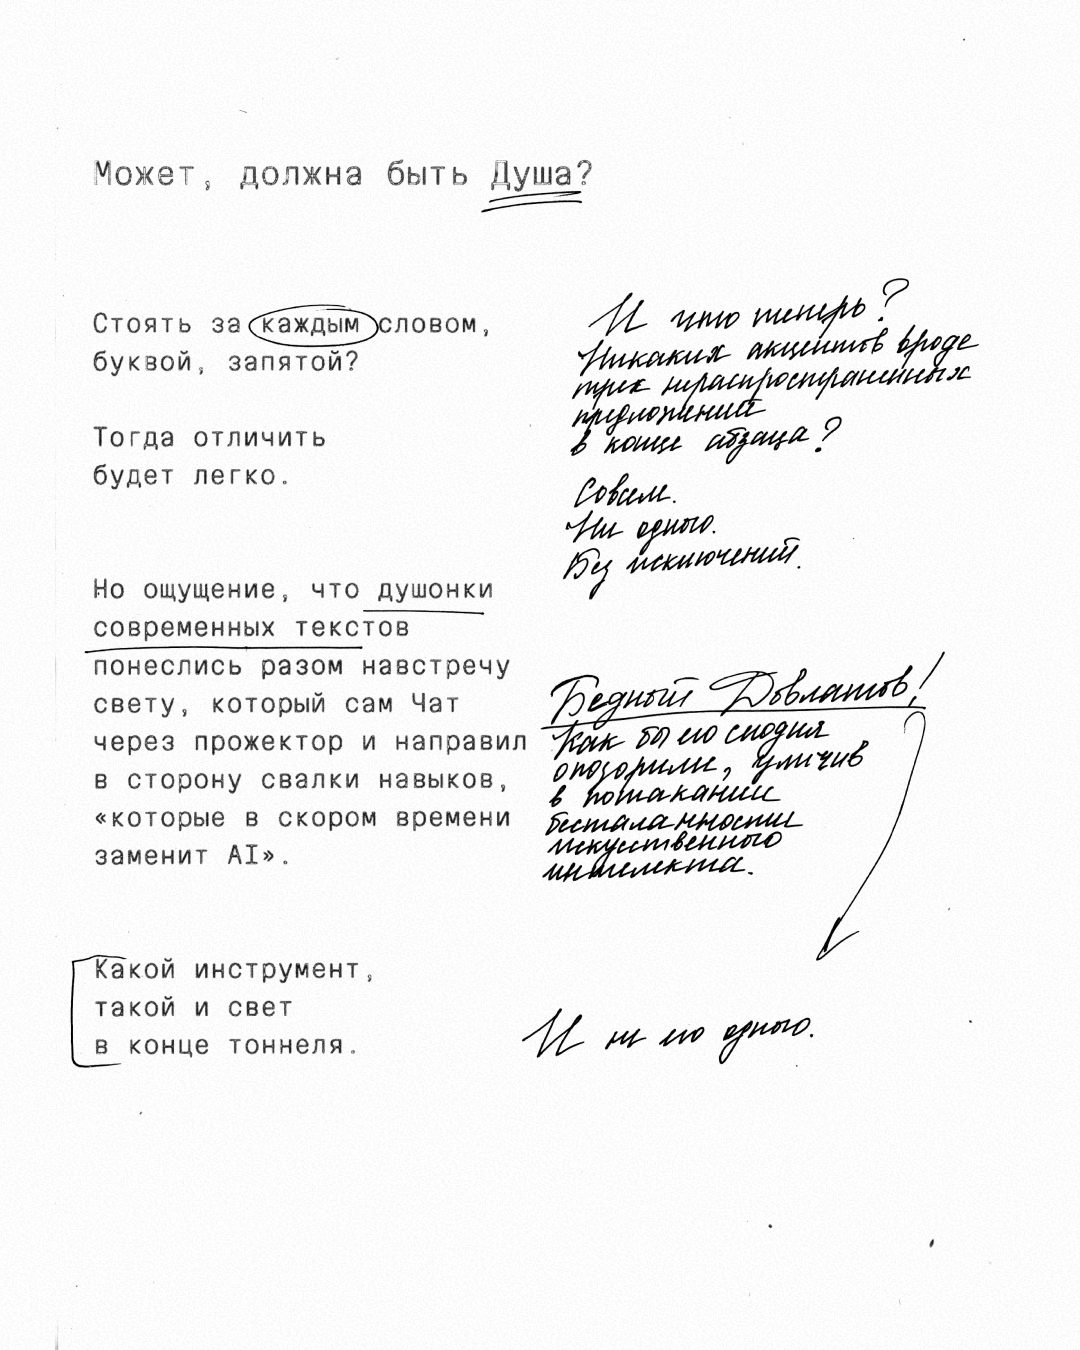 Может, должна быть Душа?
Стоять за каждым словом,
буквой, запятой?
Тогда отличить
будет легко.
Но ощущение, что душонки
современных текстов
понеслись разом навстречу
свету, который сам Чат
через прожектор и направил
в сторону свалки навыков,
«которые в скором времени
заменит AI».
Какой инструмент,
такой и свет
в конце тоннеля.
И что теперь?
Никаких акцентов вроде
трех нераспространённых
предложений
в конце абзаца?
Совсем.
Ни одного.
Без исключений.
Бедный Довлатов!
Как бы его сегодня
опозорили, уличив
в потакании
бесталанности
искусственного
интелекта.
И не его одного.